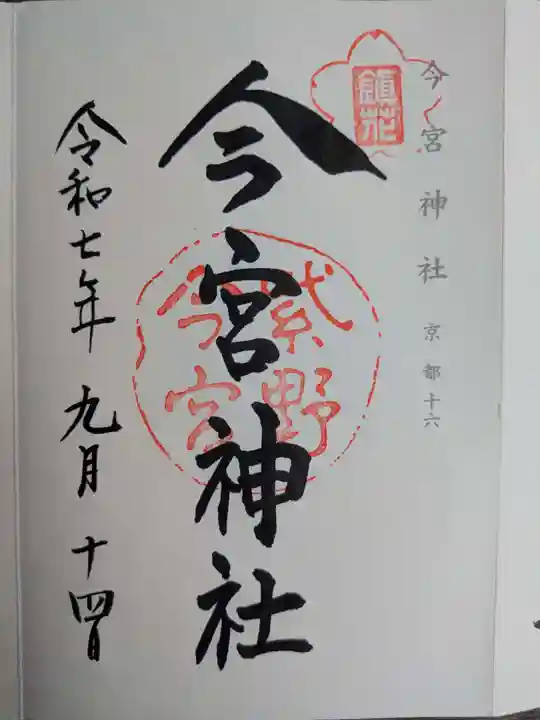 今宮神社 京都十六
鎮花
今宮神社
紫野
今宮
令和七年 九月 十四日